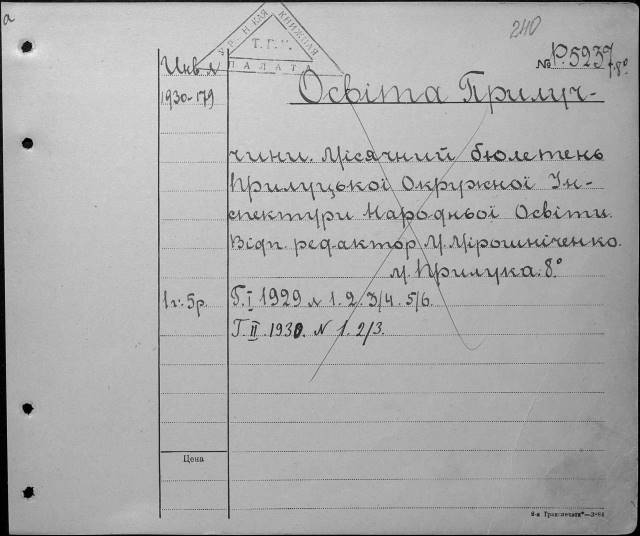 а
240
КНИЖНАЯ
Т.Г.У.
ПАЛАТА
№ Р.5237
8°
Инв. №
1930-179
Освіта Прилуч-
чини. Місячний бюлетень
Прилуцької Окружної Ін-
спектури Народньої Освіти.
Відп. редактор М. Мірошніченко.
м. Прилука. 8°
1 г.: 5 р.
Г. I 1929 № 1. 2. 3/4. 5/6.
Г. II 1930. N 1. 2/3.
Цена